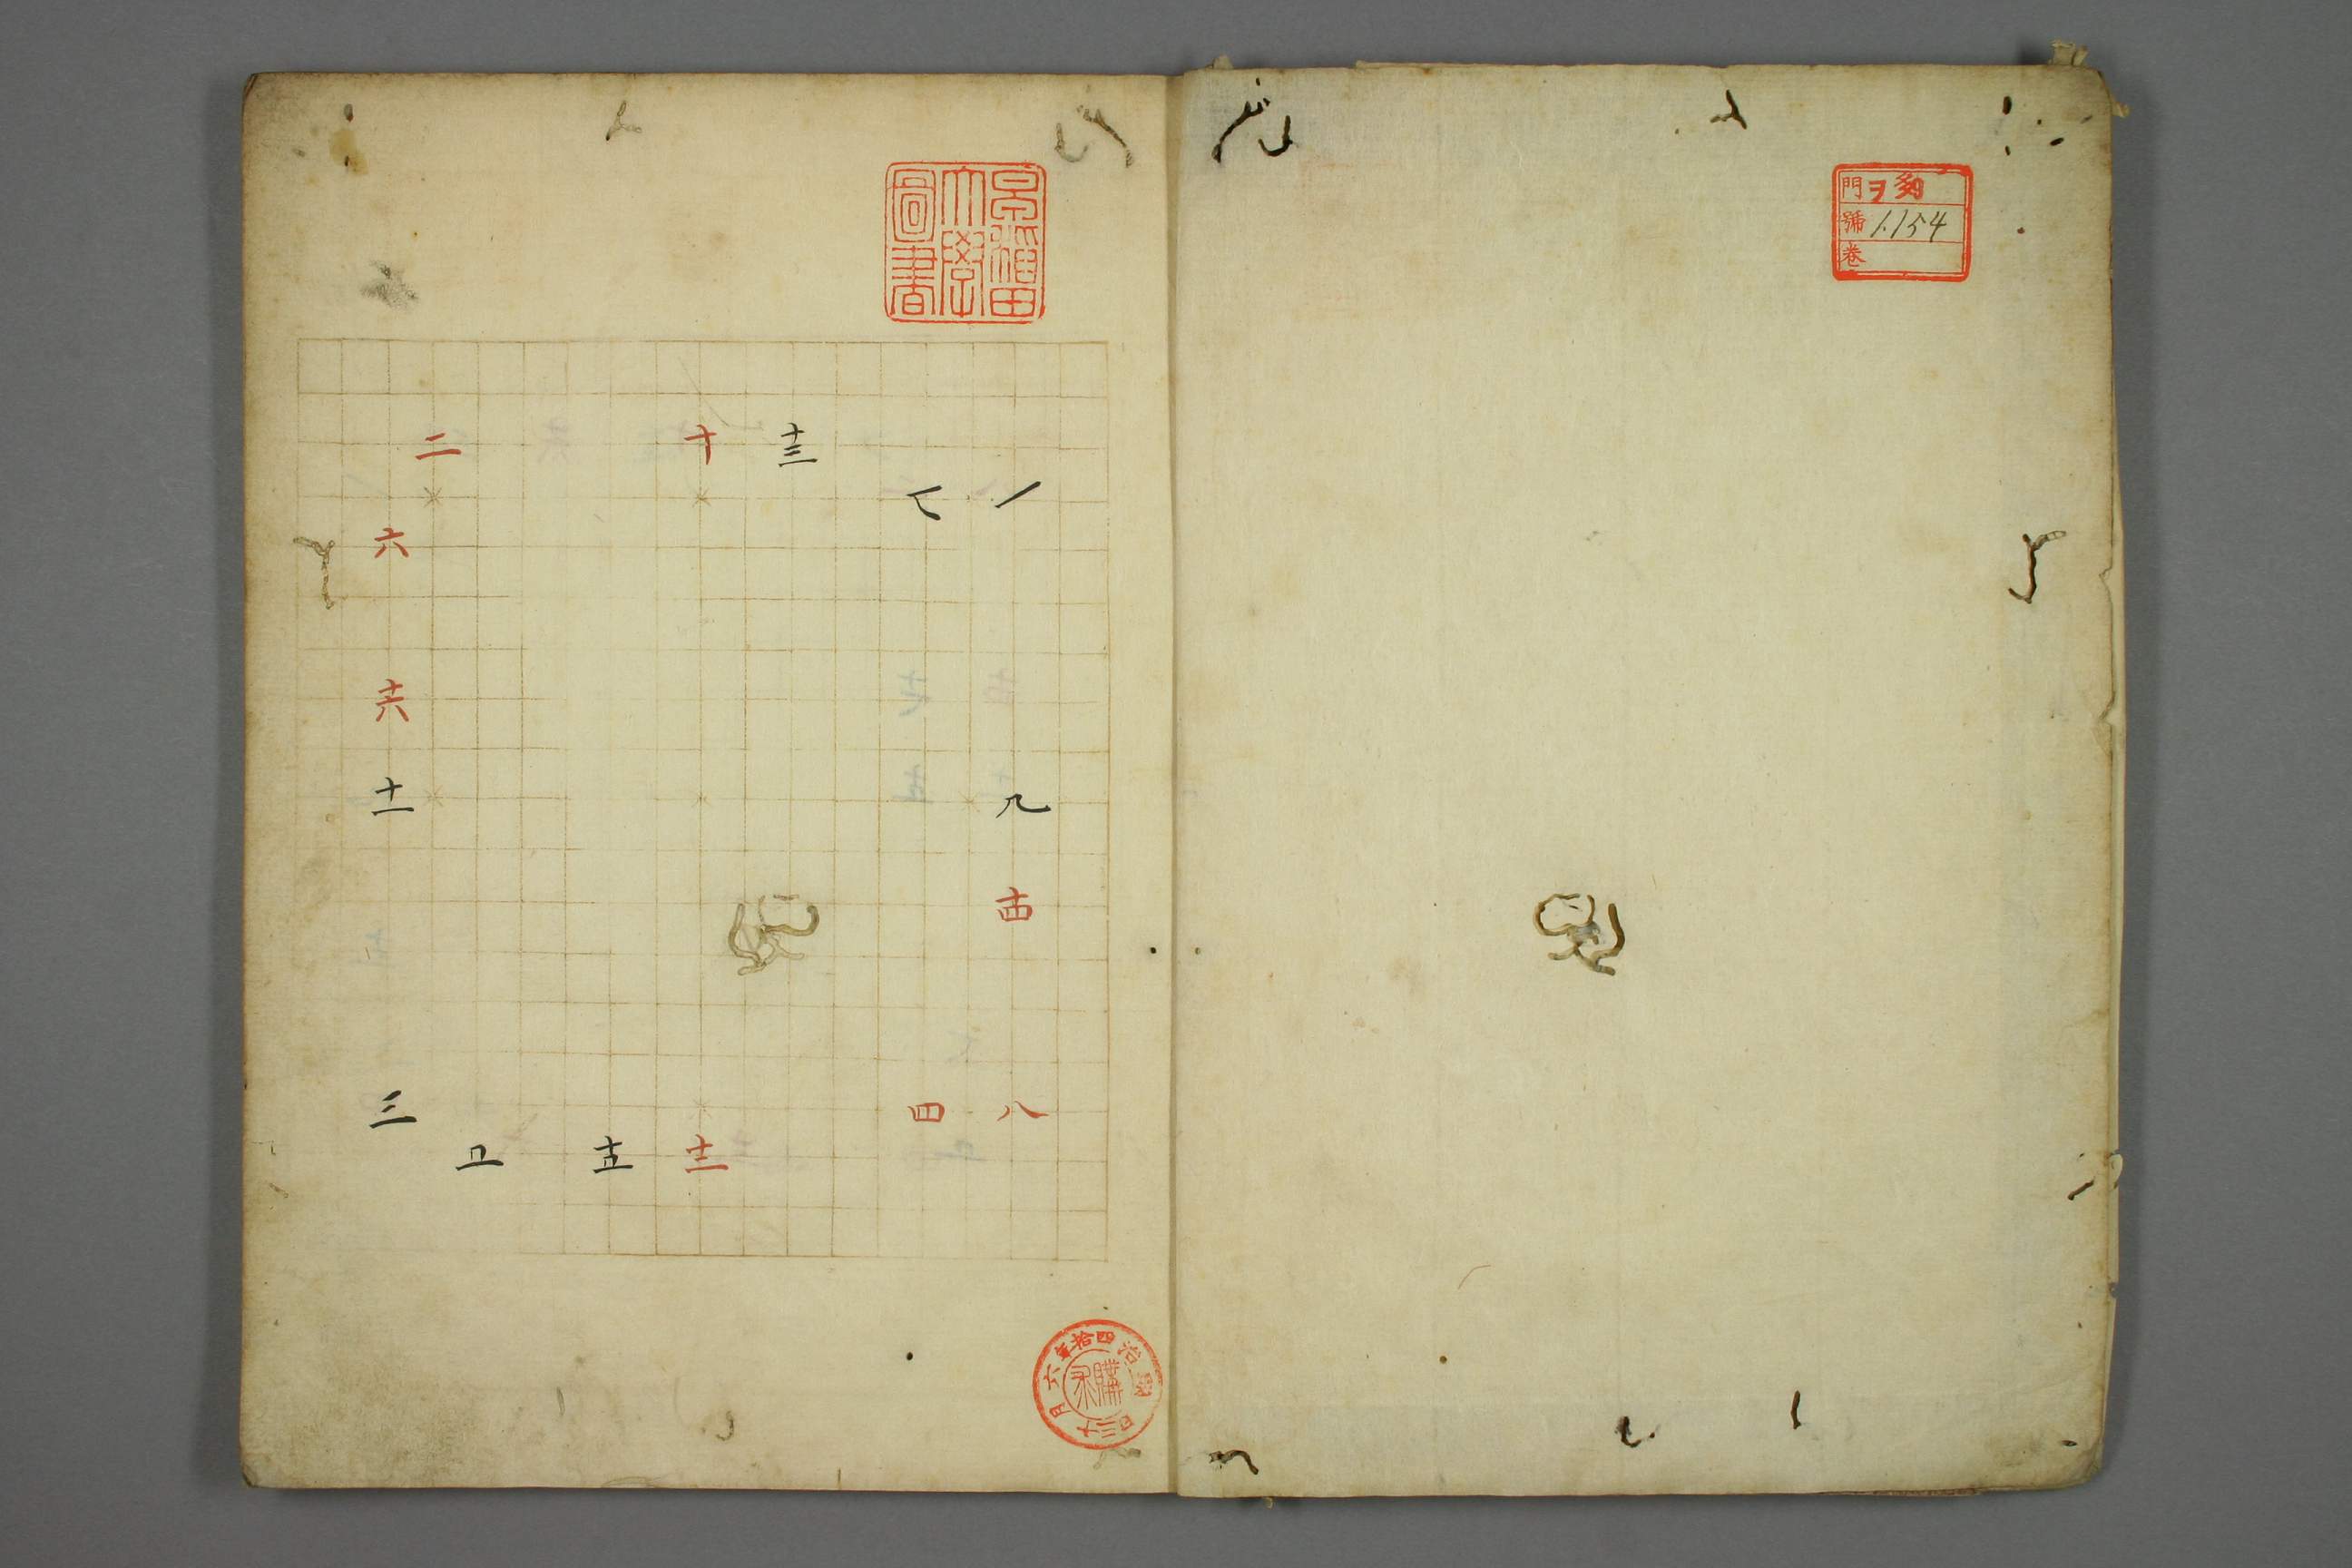 門 ヲ
號 1.154
卷
早稲田
大學
圖書
十三
十
二
一
七
六
十六
九
十一
十四
八
四
三
十二
十五
五
明治四拾年六月十三日
購求